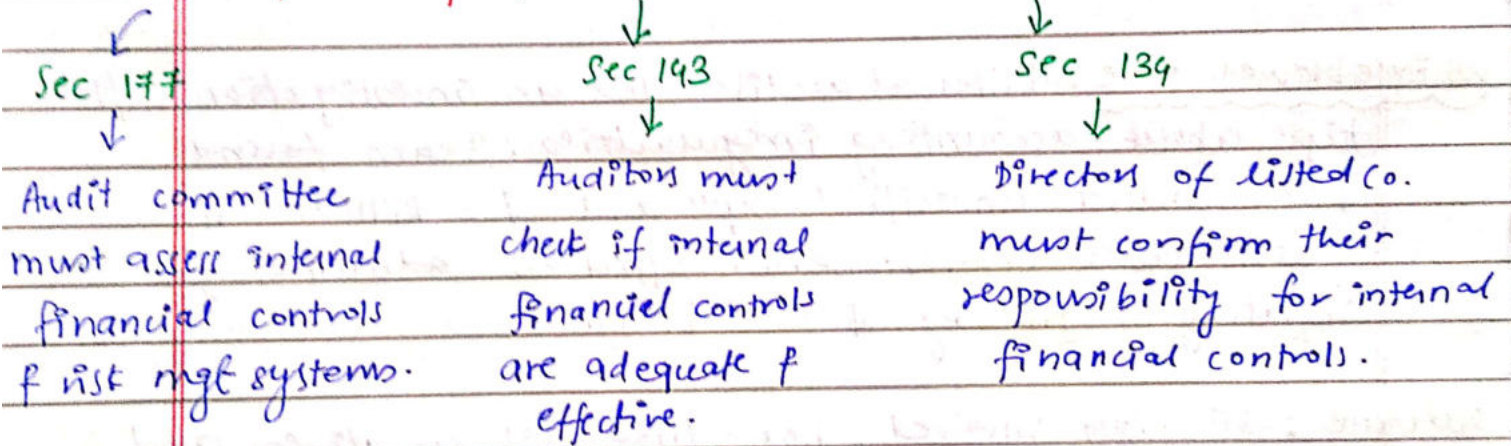 Sec 177
Sec 143
Sec 134
Audit committee
must assess internal
financial controls
& risk mgt systems.
Auditors must
check if internal
financial controls
are adequate &
effective.
Directors of listed co.
must confirm their
responsibility for internal
financial controls.